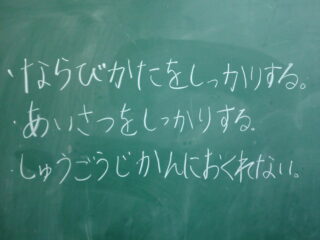 ・ならびかたをしっかりする。
・あいさつをしっかりする。
・しゅうごうじかんにおくれない。